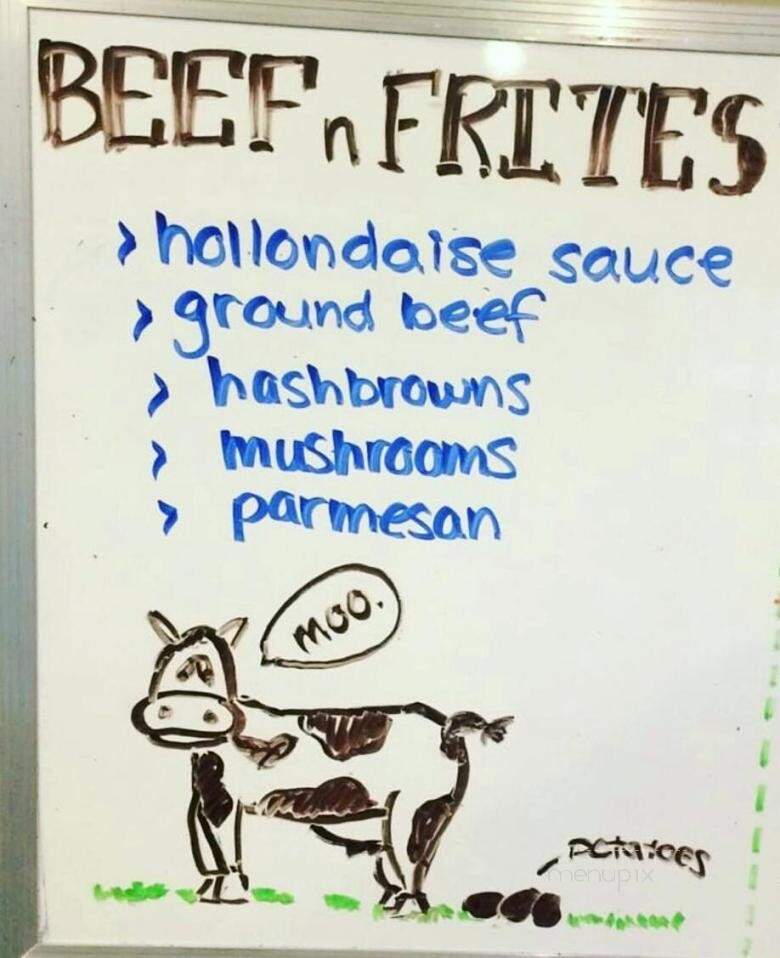 BEEF n FRITES
> hollondaise sauce
> ground beef
> hashbrowns
> mushrooms
> parmesan
moo.
POTATOES
menupix